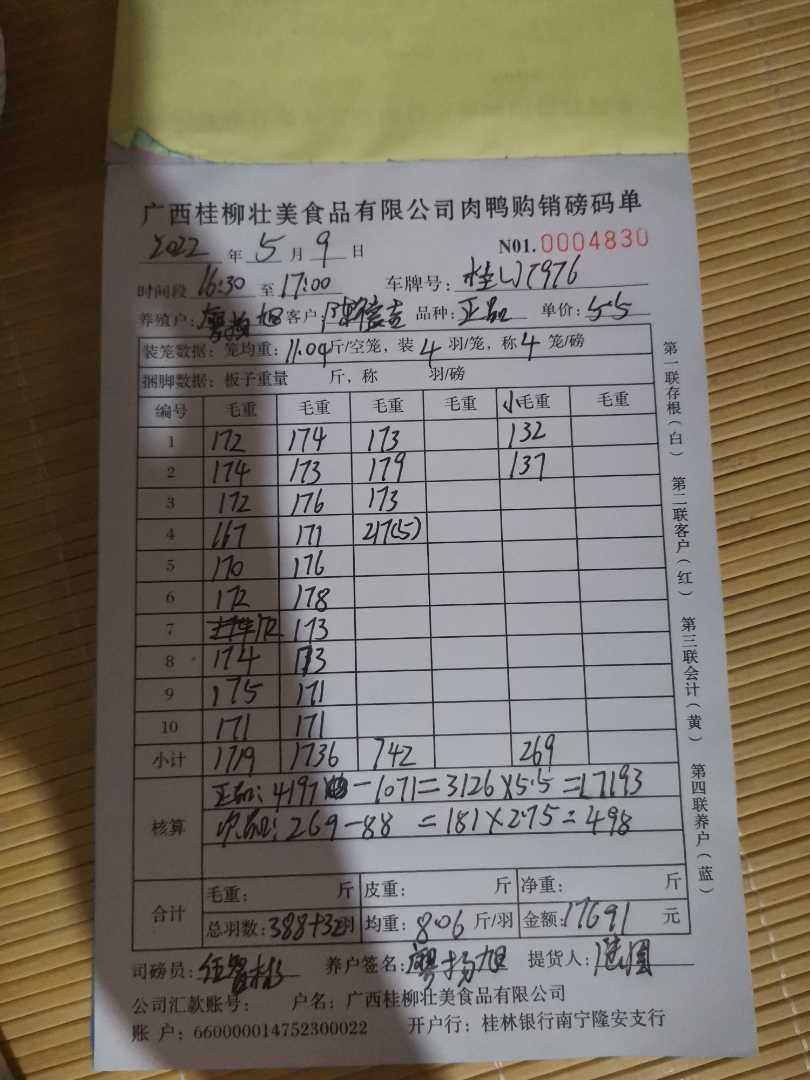 广西桂柳壮美食品有限公司肉鸭购销磅码单
2022 年 5 月 9 日 N01. 0004830
时间段 16:30 至 17:00 车牌号: 7976
养殖户: 廖扬旭 客户: 陈德吉 品种: 正品 单价: 5.5
装笼数据: 笼均重: 11.04 斤/空笼, 装 4 羽/笼, 称 4 笼/磅
捆脚数据: 板子重量 斤, 称 羽/磅
编号 毛重 毛重 毛重 毛重 小毛重 毛重
1 172 174 173 132
2 174 173 179 137
3 172 176 173
4 167 171 217(5)
5 170 176
6 172 178
7 172 173
8 174 173
9 175 171
10 171 171
小计 1719 1736 742 269
核算
正品: 4197 -1071=3126×5.5=17193
次品: 269-88 =181×2.75=498
合计
毛重: 斤 皮重: 斤 净重: 斤
总羽数: 388+32羽 均重: 8.06 斤/羽 金额: 17691 元
司磅员: 养户签名: 廖扬旭 提货人:
公司汇款账号: 户名: 广西桂柳壮美食品有限公司
账 户: 660000014752300022 开户行: 桂林银行南宁隆安支行
第一联存根(白) 第二联客户(红) 第三联会计(黄) 第四联养户(蓝)